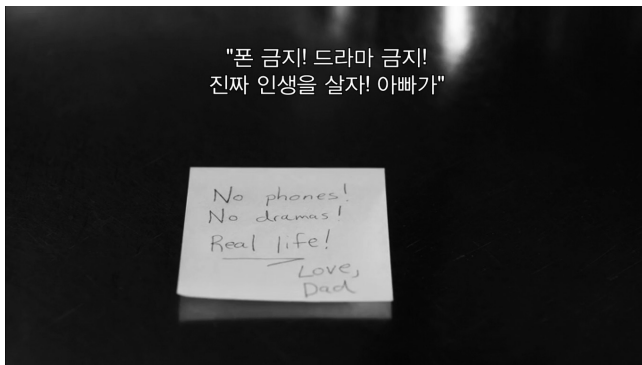 "폰 금지! 드라마 금지!
진짜 인생을 살자! 아빠가"
No phones!
No dramas!
Real life!
Love,
Dad